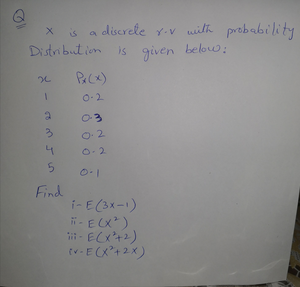 Q
X is a discrete r.v with probability
Distribution is given below:
x Px(x)
1 0.2
2 0.3
3 0.2
4 0.2
5 0.1
Find
i- E(3x-1)
ii- E(X²)
iii- E(X²+2)
iv- E(X²+2x)